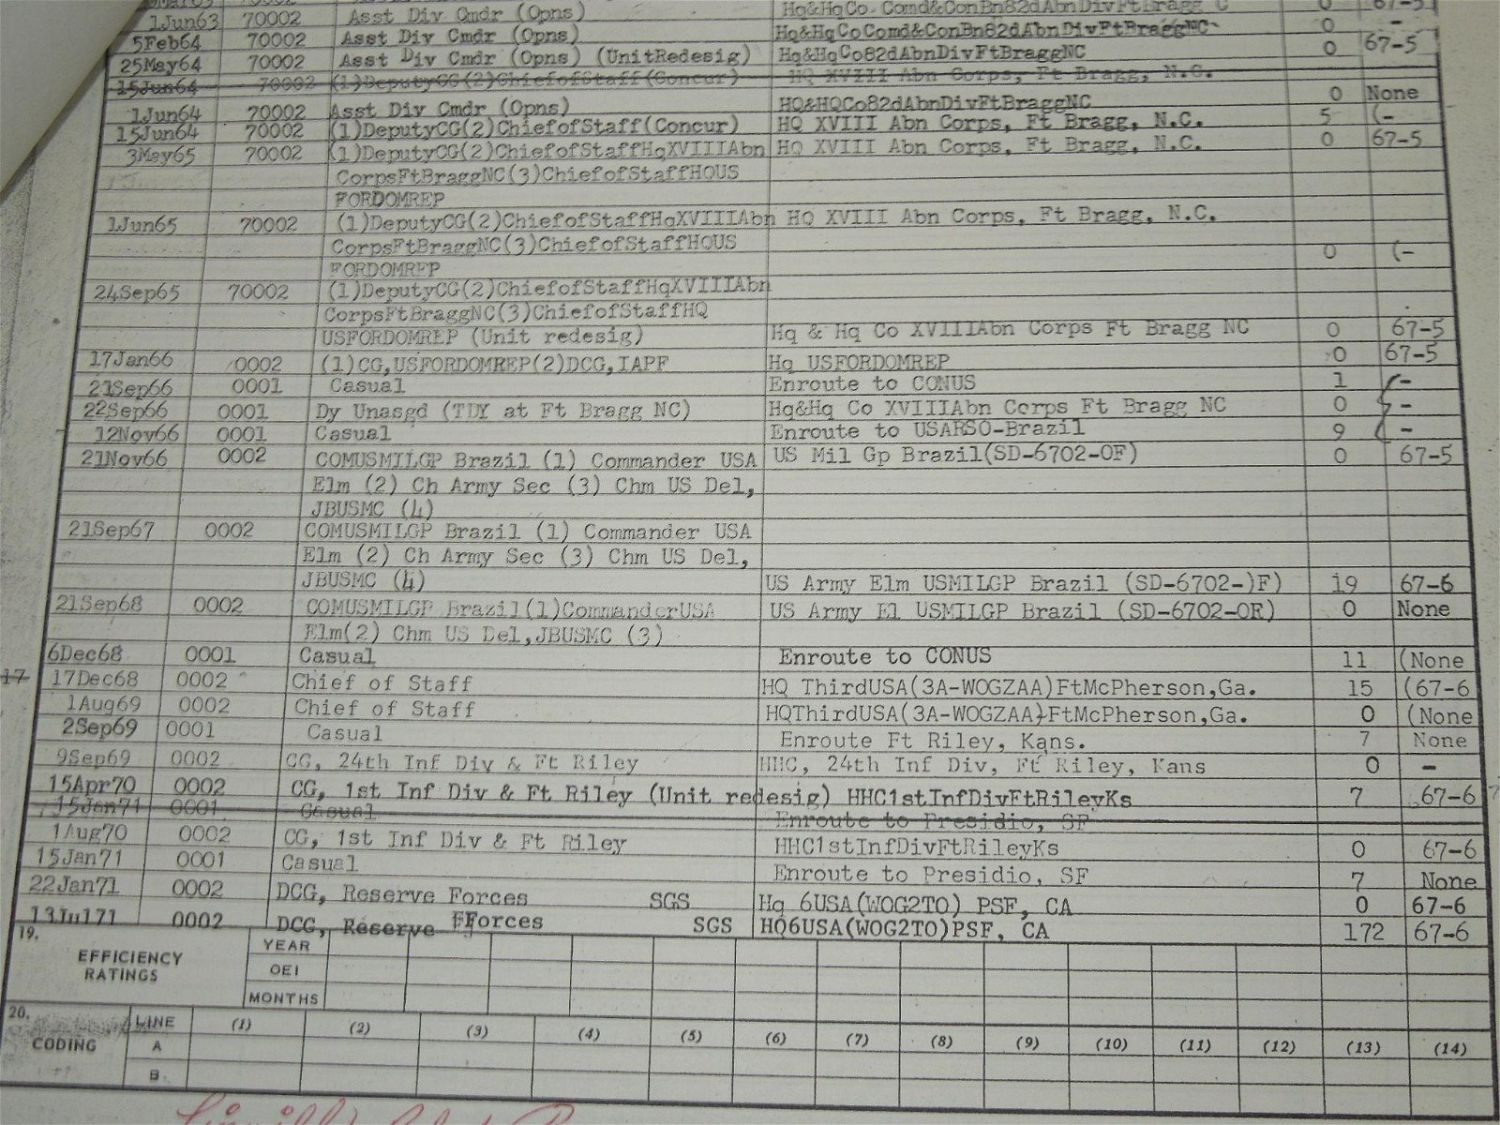 1Jun63 70002 Asst Div Cmdr (Opns) Hq&HqCo. Comd&ConBn82dAbnDivFtBragg C 0 67-5
5Feb64 70002 Asst Div Cmdr (Opns) Hq&HqCoComd&ConBn82dAbnDivFtBraggNC 0 -
25May64 70002 Asst Div Cmdr (Opns) (UnitRedesig) Hq&HqCo82dAbnDivFtBraggNC 0 67-5
15Jun64 70002 (1)DeputyCG(2)ChiefofStaff(Concur) HQ XVIII Abn Corps, Ft Bragg, N.C.
1Jun64 70002 Asst Div Cmdr (Opns) HQ&HQCo82dAbnDivFtBraggNC 0 None
15Jun64 70002 (1)DeputyCG(2)ChiefofStaff(Concur) HQ XVIII Abn Corps, Ft Bragg, N.C. 5 (-
3May65 70002 (1)DeputyCG(2)ChiefofStaffHqXVIIIAbn HQ XVIII Abn Corps, Ft Bragg, N.C. 0 67-5
CorpsFtBraggNC(3)ChiefofStaffHQUS
FORDOMREP
1Jun65 70002 (1)DeputyCG(2)ChiefofStaffHqXVIIIAbn HQ XVIII Abn Corps, Ft Bragg, N.C.
CorpsFtBraggNC(3)ChiefofStaffHQUS 0 (-
FORDOMREP
24Sep65 70002 (1)DeputyCG(2)ChiefofStaffHqXVIIIAbn
CorpsFtBraggNC(3)ChiefofStaffHQ
USFORDOMREP (Unit redesig) Hq & Hq Co XVIIIAbn Corps Ft Bragg NC 0 67-5
17Jan66 0002 (1)CG,USFORDOMREP(2)DCG,IAPF Hq USFORDOMREP 0 67-5
21Sep66 0001 Casual Enroute to CONUS 1 (-
22Sep66 0001 Dy Unasgd (TDY at Ft Bragg NC) Hq&Hq Co XVIIIAbn Corps Ft Bragg NC 0 -
12Nov66 0001 Casual Enroute to USARSO-Brazil 9 -
21Nov66 0002 COMUSMILGP Brazil (1) Commander USA US Mil Gp Brazil(SD-6702-OF) 0 67-5
Elm (2) Ch Army Sec (3) Chm US Del,
JBUSMC (4)
21Sep67 0002 COMUSMILGP Brazil (1) Commander USA
Elm (2) Ch Army Sec (3) Chm US Del,
JBUSMC (4) US Army Elm USMILGP Brazil (SD-6702-)F) 19 67-6
21Sep68 0002 COMUSMILGP Brazil(1)CommanderUSA US Army El USMILGP Brazil (SD-6702-OR) 0 None
Elm(2) Chm US Del,JBUSMC (3)
6Dec68 0001 Casual Enroute to CONUS 11 (None
17 17Dec68 0002 Chief of Staff HQ ThirdUSA(3A-WOGZAA)FtMcPherson,Ga. 15 (67-6
1Aug69 0002 Chief of Staff HQThirdUSA(3A-WOGZAA)FtMcPherson,Ga. 0 (None
2Sep69 0001 Casual Enroute Ft Riley, Kans. 7 None
9Sep69 0002 CG, 24th Inf Div & Ft Riley HHC, 24th Inf Div, Ft Riley, Kans 0 -
15Apr70 0002 CG, 1st Inf Div & Ft Riley (Unit redesig) HHC1stInfDivFtRileyKs 7 67-6
15Jan71 0001 Casual Enroute to Presidio, SF
1Aug70 0002 CG, 1st Inf Div & Ft Riley HHC1stInfDivFtRileyKs 0 67-6
15Jan71 0001 Casual Enroute to Presidio, SF 7 None
22Jan71 0002 DCG, Reserve Forces SGS Hq 6USA(WOG2TO) PSF, CA 0 67-6
13Jul71 0002 DCG, Reserve FForces SGS HQ6USA(WOG2TO)PSF, CA 172 67-6
19. EFFICIENCY RATINGS YEAR
OEI
MONTHS
20. CODING LINE (1) (2) (3) (4) (5) (6) (7) (8) (9) (10) (11) (12) (13) (14)
A
B